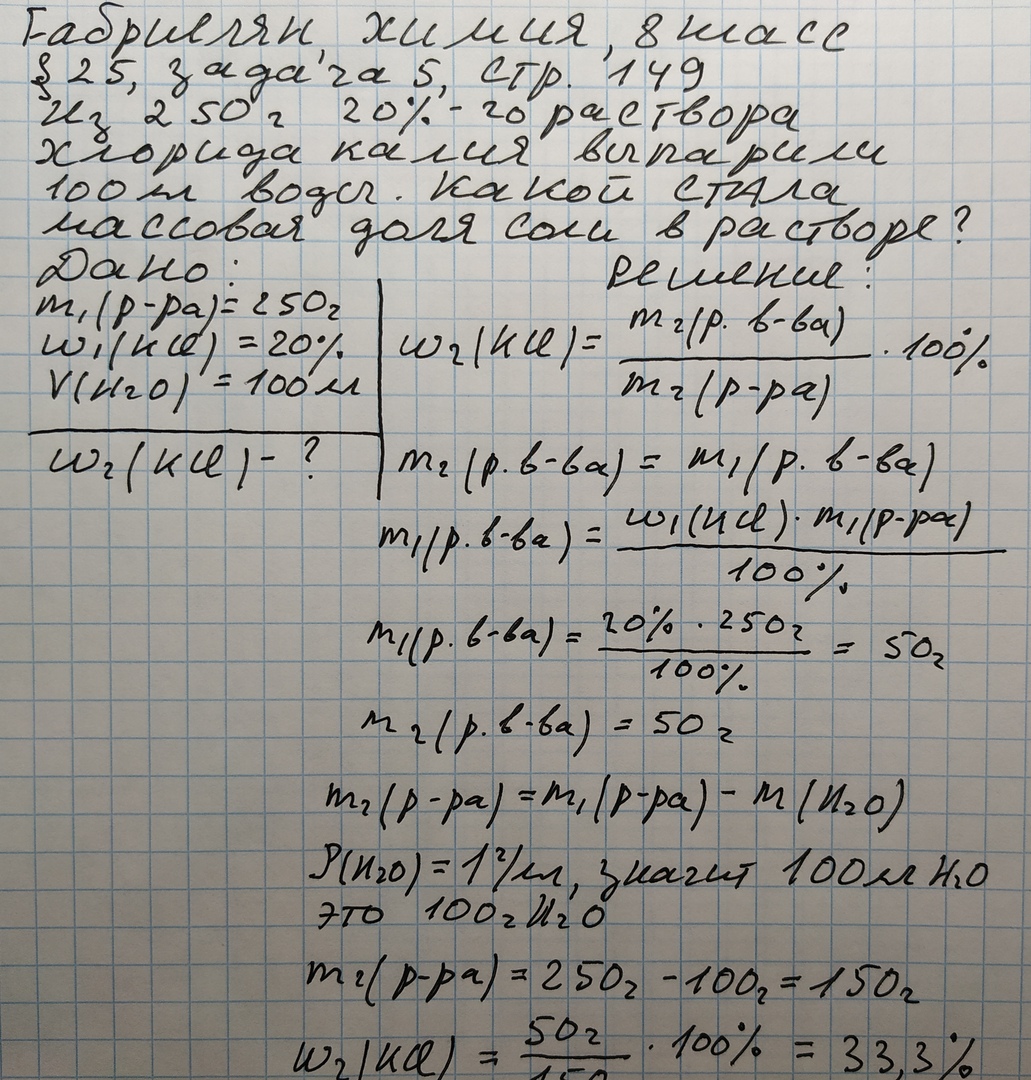 Габриелян, химия, 8 класс
§ 25, задача 5, стр. 149
Из 250г 20%-го раствора
хлорида калия выпарили
100мл воды. Какой стала
массовая доля соли в растворе?
Дано:
m₁(р-ра)=250г
w₁(KCl)=20%
V(H₂O)=100мл
w₂(KCl)-?
Решение:
w₂(KCl)= m₂(р. в-ва) / m₂(р-ра) · 100%
m₂(р. в-ва) = m₁(р. в-ва)
m₁(р.в-ва) = w₁(KCl)·m₁(р-ра) / 100%
m₁(р.в-ва) = 20%·250г / 100% = 50г
m₂(р.в-ва) = 50г
m₂(р-ра)=m₁(р-ра)-m(H₂O)
ρ(H₂O)=1г/мл, значит 100мл H₂O
это 100г H₂O
m₂(р-ра)=250г-100г=150г
w₂(KCl) = 50г / 150 · 100% = 33,3%